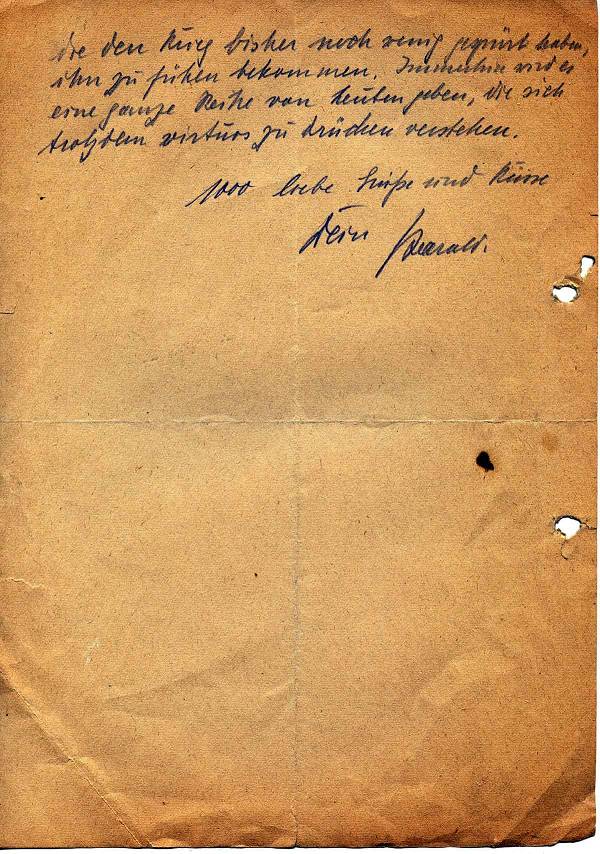 die den Krieg bisher noch wenig gespürt haben,
ihn zu fühlen bekommen. Immerhin wird es
eine ganze Reihe von Leuten geben, die sich
trotzdem virtuos zu drücken verstehen.
1000 liebe Grüße und Küsse
Dein Harald.